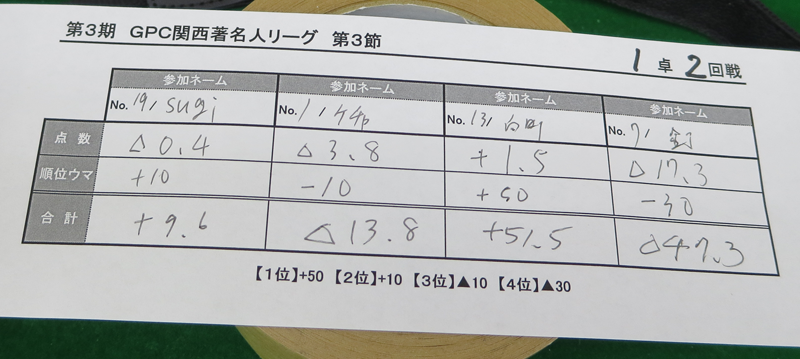 第3期 GPC関西著名人リーグ 第3節
1 卓 2 回戦
参加ネーム 参加ネーム 参加ネーム 参加ネーム
No. 19/ sugi No. 1/ No. 13/ 白町 No. 7/ 釘
点数 △0.4 △3.8 +1.5 △17.3
順位ウマ +10 -10 +50 -30
合計 +9.6 △13.8 +51.5 △47.3
【1位】+50 【2位】+10 【3位】▲10 【4位】▲30